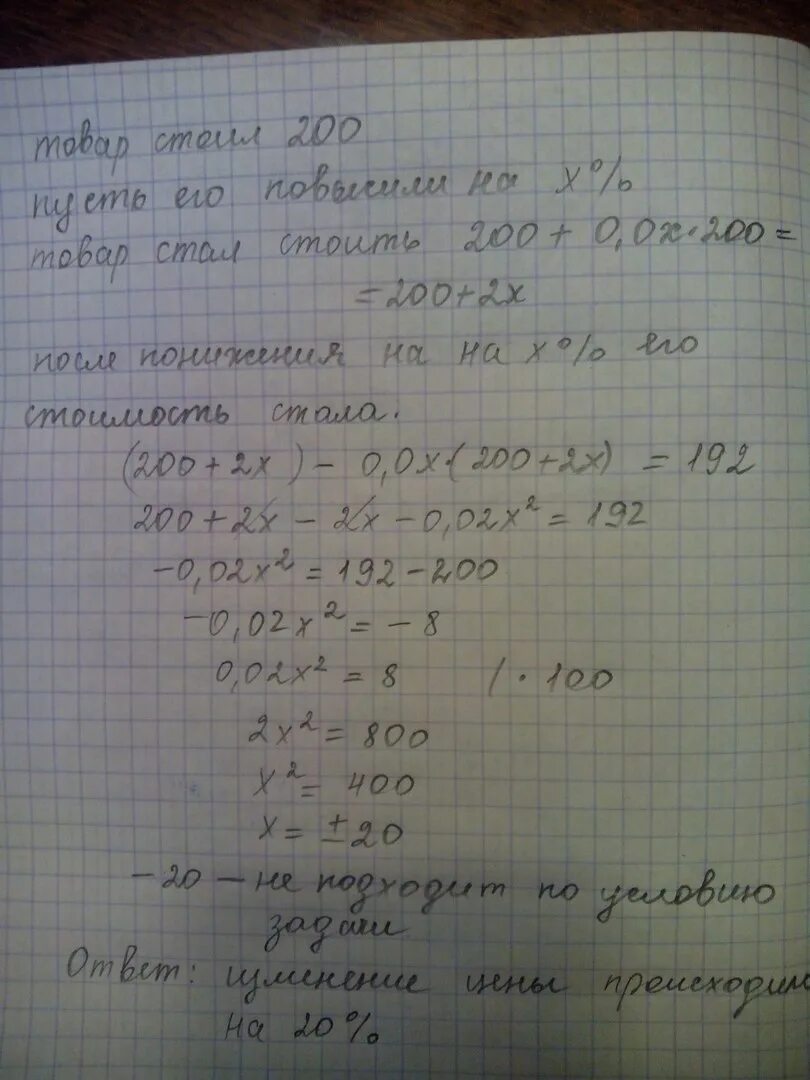 товар стоил 200
пусть его повысили на x%
товар стал стоить 200 + 0,0x·200 =
= 200+2x
после понижения на на x% его
стоимость стала.
(200 + 2x) - 0,0x·(200+2x) = 192
200 + 2x - 2x - 0,02x² = 192
-0,02x² = 192 - 200
-0,02x² = - 8
0,02x² = 8 / · 100
2x² = 800
x² = 400
x = ± 20
-20 - не подходит по условию
задачи
Ответ: изменение цены происходит
на 20%